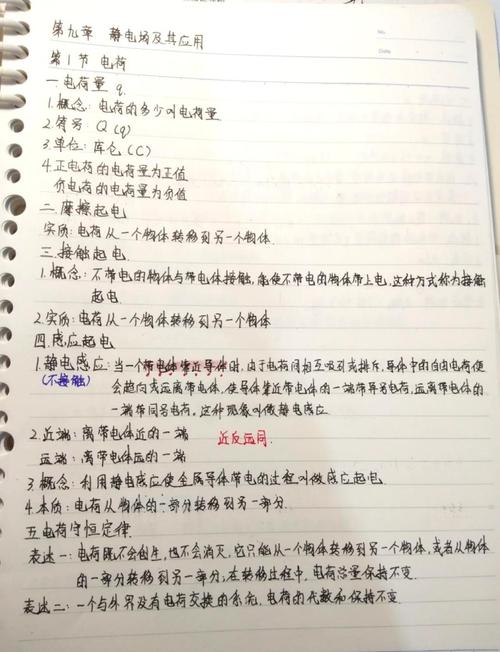 第九章 静电场及其应用
No.
Date
第1节 电荷
一.电荷量 q.
1.概念:电荷的多少叫电荷量
2.符号:Q(q)
3.单位:库仑(C)
4.正电荷的电荷量为正值
负电荷的电荷量为负值
二.摩擦起电
实质:电荷从一个物体转移到另一个物体.
三.接触起电.
1.概念:不带电的物体与带电体接触,能使不带电的物体带上电,这种方式称为接触
起电
2.实质:电荷从一个物体转移到另一个物体
四.感应起电
1.静电感应:当一个带电体靠近导体时,由于电荷间相互吸引或排斥,导体中的自由电荷便
(不接触)
会趋向或远离带电体,使导体靠近带电体的一端带异号电荷,远离带电体的
一端带同号电荷,这种现象叫做静电感应
2.近端:离带电体近的一端
近反远同.
远端:离带电体远的一端
3.概念:利用静电感应使金属导体带电的过程叫做感应起电
4.本质:电荷从物体的一部分转移到另一部分.
五.电荷守恒定律.
表述一:电荷既不会创生,也不会消灭,它只能从一个物体转移到另一个物体,或者从物体
的一部分转移到另一部分,在转移过程中,电荷总量保持不变.
表述二:一个与外界没有电荷交换的系统,电荷的代数和保持不变.